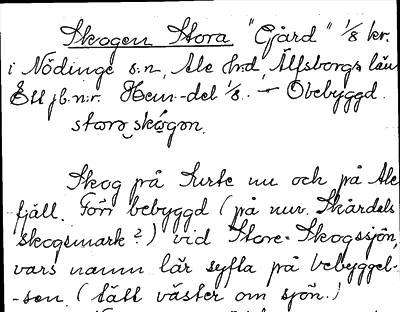 Skogen Stora "Gård" 1/8 kr.
i Nödinge s:n, Ale h:d, Älfsborgs län
Ett jb.n:r. Hem.-del 1/8. — Obebyggd.
stora skógen.
Skog på Surte nu och på Ale
fjäll. Förr bebyggd (på nuv. Skårdels
skogsmark?) vid Stora Skogssjön,
vars namn lär syfta på bebyggel-
-sen. (tätt väster om sjön.)